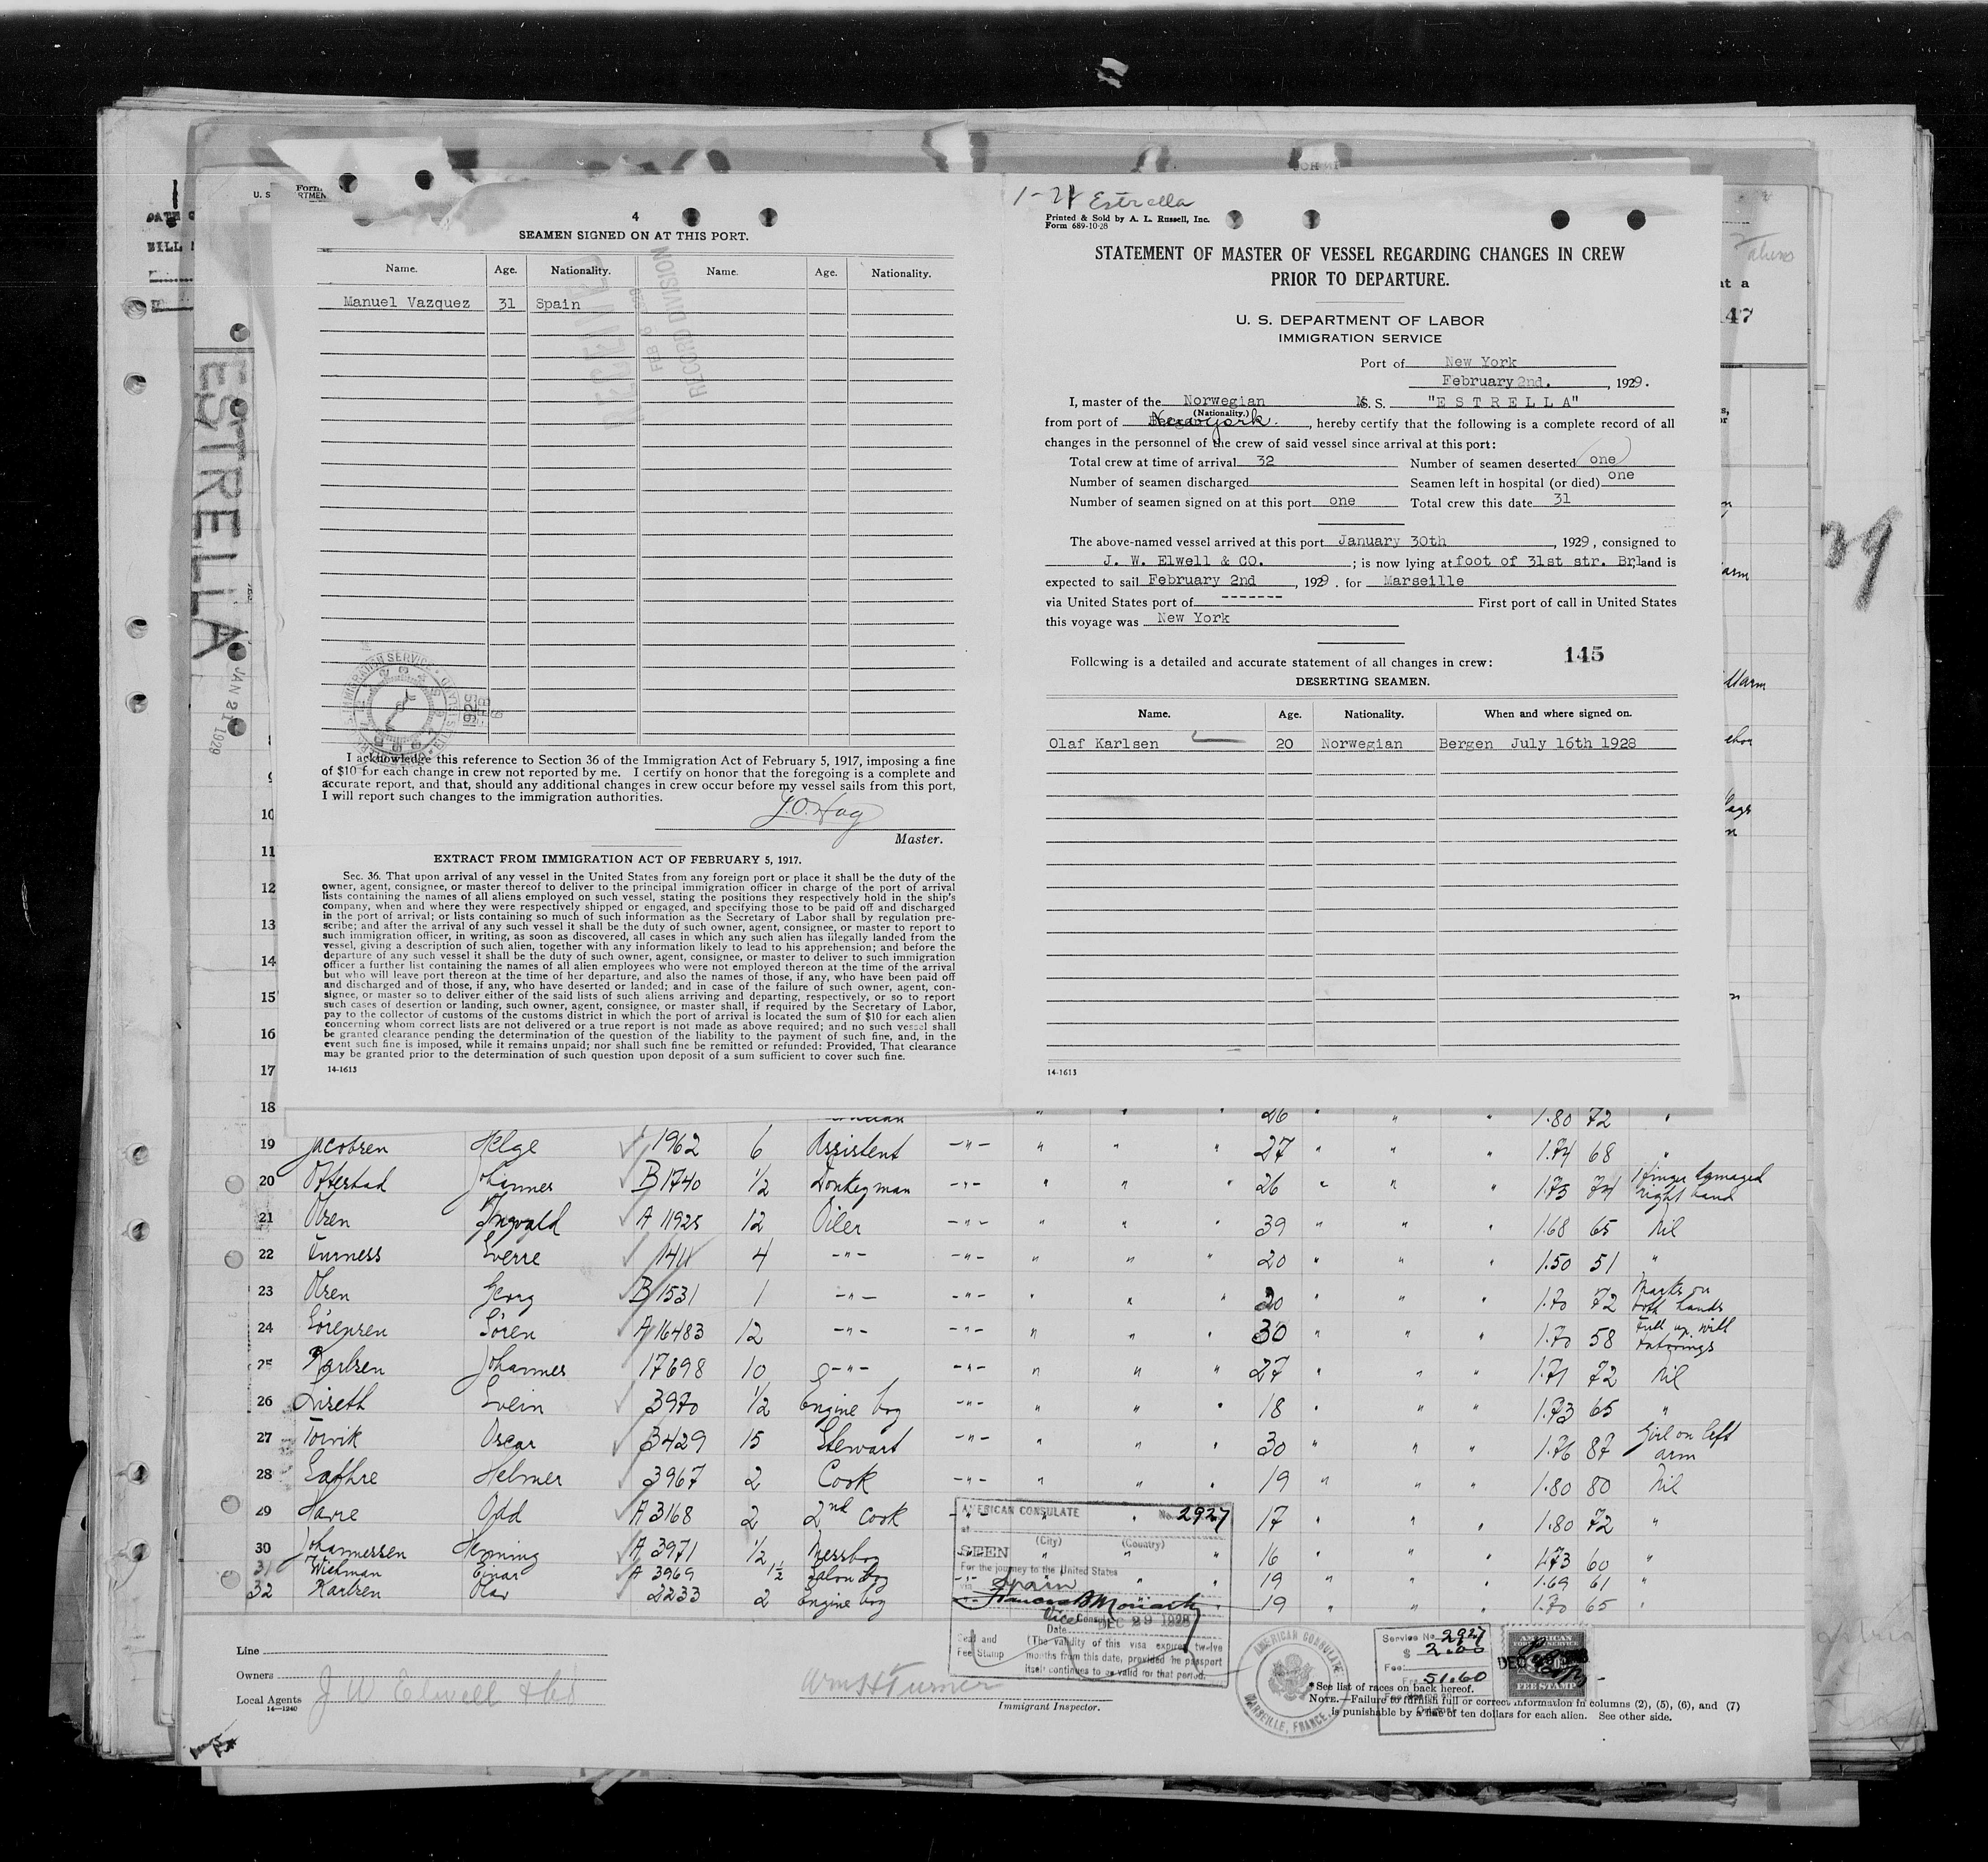 4
SEAMEN SIGNED ON AT THIS PORT.
Name. Age. Nationality. Name. Age. Nationality.
Manuel Vazquez 31 Spain
RECORD DIVISION
I acknowledge this reference to Section 36 of the Immigration Act of February 5, 1917, imposing a fine
of $10 for each change in crew not reported by me. I certify on honor that the foregoing is a complete and
accurate report, and that, should any additional changes in crew occur before my vessel sails from this port,
I will report such changes to the immigration authorities.
J.O. Hag
Master.
EXTRACT FROM IMMIGRATION ACT OF FEBRUARY 5, 1917.
Sec. 36. That upon arrival of any vessel in the United States from any foreign port or place it shall be the duty of the
owner, agent, consignee, or master thereof to deliver to the principal immigration officer in charge of the port of arrival
lists containing the names of all aliens employed on such vessel, stating the positions they respectively hold in the ship's
company, when and where they were respectively shipped or engaged, and specifying those to be paid off and discharged
in the port of arrival; or lists containing so much of such information as the Secretary of Labor shall by regulation pre-
scribe; and after the arrival of any such vessel it shall be the duty of such owner, agent, consignee, or master to report to
such immigration officer, in writing, as soon as discovered, all cases in which any such alien has illegally landed from the
vessel, giving a description of such alien, together with any information likely to lead to his apprehension; and before the
departure of any such vessel it shall be the duty of such owner, agent, consignee, or master to deliver to such immigration
officer a further list containing the names of all alien employees who were not employed thereon at the time of the arrival
but who will leave port thereon at the time of her departure, and also the names of those, if any, who have been paid off
and discharged and of those, if any, who have deserted or landed; and in case of the failure of such owner, agent, con-
signee, or master so to deliver either of the said lists of such aliens arriving and departing, respectively, or so to report
such cases of desertion or landing, such owner, agent, consignee, or master shall, if required by the Secretary of Labor,
pay to the collector of customs of the customs district in which the port of arrival is located the sum of $10 for each alien
concerning whom correct lists are not delivered or a true report is not made as above required; and no such vessel shall
be granted clearance pending the determination of the question of the liability to the payment of such fine, and, in the
event such fine is imposed, while it remains unpaid; nor shall such fine be remitted or refunded: Provided, That clearance
may be granted prior to the determination of such question upon deposit of a sum sufficient to cover such fine.
14-1613
1-21 Estrella
Printed & Sold by A. L. Russell, Inc.
Form 689-10-28
STATEMENT OF MASTER OF VESSEL REGARDING CHANGES IN CREW
PRIOR TO DEPARTURE.
U. S. DEPARTMENT OF LABOR
IMMIGRATION SERVICE
Port of New York
February 2nd. , 1929.
I, master of the Norwegian M.S. "E S T R E L L A"
(Nationality.)
from port of New York. , hereby certify that the following is a complete record of all
changes in the personnel of the crew of said vessel since arrival at this port:
Total crew at time of arrival 32 Number of seamen deserted one
Number of seamen discharged Seamen left in hospital (or died) one
Number of seamen signed on at this port one Total crew this date 31
The above-named vessel arrived at this port January 30th , 1929, consigned to
J. W. Elwell & CO. ; is now lying at foot of 31st str. Brl, and is
expected to sail February 2nd , 1929. for Marseille
via United States port of ------- First port of call in United States
this voyage was New York
145
Following is a detailed and accurate statement of all changes in crew:
DESERTING SEAMEN.
Name. Age. Nationality. When and where signed on.
Olaf Karlsen 20 Norwegian Bergen July 16th 1928
14-1613
ESTRELLA
JAN 21 1929
47
10
11
12
13
14
15
16
17
18 26 " " " 1.80 72 "
19 Jacobsen Helge 1962 6 Assistent -"- " " " 27 " " " 1.74 68 "
20 Ofterstad Johannes B 1740 1/2 Donkeyman -"- " " " 26 " " " 1.75 74 1 finger damaged right hand
21 Olsen Ingvald A 11925 12 Oiler -"- " " " 39 " " " 1.68 65 Nil
22 Furness Sverre 1411 4 -"- -"- " " " 20 " " " 1.50 51 "
23 Olsen Georg B 1531 1 -"- -"- " " " 20 " " " 1.70 72 Marks on both hands
24 Sörensen Sören A 16483 12 -"- -"- " " " 30 " " " 1.70 58 Full up with tatovings
25 Karlsen Johannes 17698 10 -"- -"- " " " 27 " " " 1.71 72 Nil
26 Lireth Svein 3970 1/2 Engine boy -"- " " " 18 " " " 1.73 65 "
27 Torvik Oscar 3429 15 Stewart -"- " " " 30 " " " 1.76 87 Girl on left arm
28 Sathre Helmer 3967 2 Cook -"- " " " 19 " " " 1.80 80 Nil
29 Havre Odd A 3168 2 2nd Cook -"- " 17 " " " 1.80 72 "
30 Johannessen Henning A 3971 1/2 Messboy " " " 16 " " " 1.73 60 "
31 Wickman Einar A 3969 1 1/2 Salon boy " " 19 " " " 1.69 61 "
32 Karlsen Olav 2233 2 Engine boy " 19 " " " 1.70 65 "
AMERICAN CONSULATE No. 2927
at
(City) (Country)
SEEN
For the journey to the United States
via Spain
Francis B Moriarty
Vice Consul
Date DEC 29 1928
Seal and Fee Stamp
(The validity of this visa expires twelve
months from this date, provided the passport
itself continues to be valid for that period.
AMERICAN CONSULATE
MARSEILLE, FRANCE.
Service No. 2927
$ 2.00
Fee:
Frs. 51.60
Original
AMERICAN
FOREIGN SERVICE
FEE STAMP
Line
Owners
Local Agents J W Elwell & Co
14-1240
Wm H Turner
Immigrant Inspector.
*See list of races on back hereof.
NOTE.—Failure to furnish full or correct information in columns (2), (5), (6), and (7)
is punishable by a fine of ten dollars for each alien. See other side.